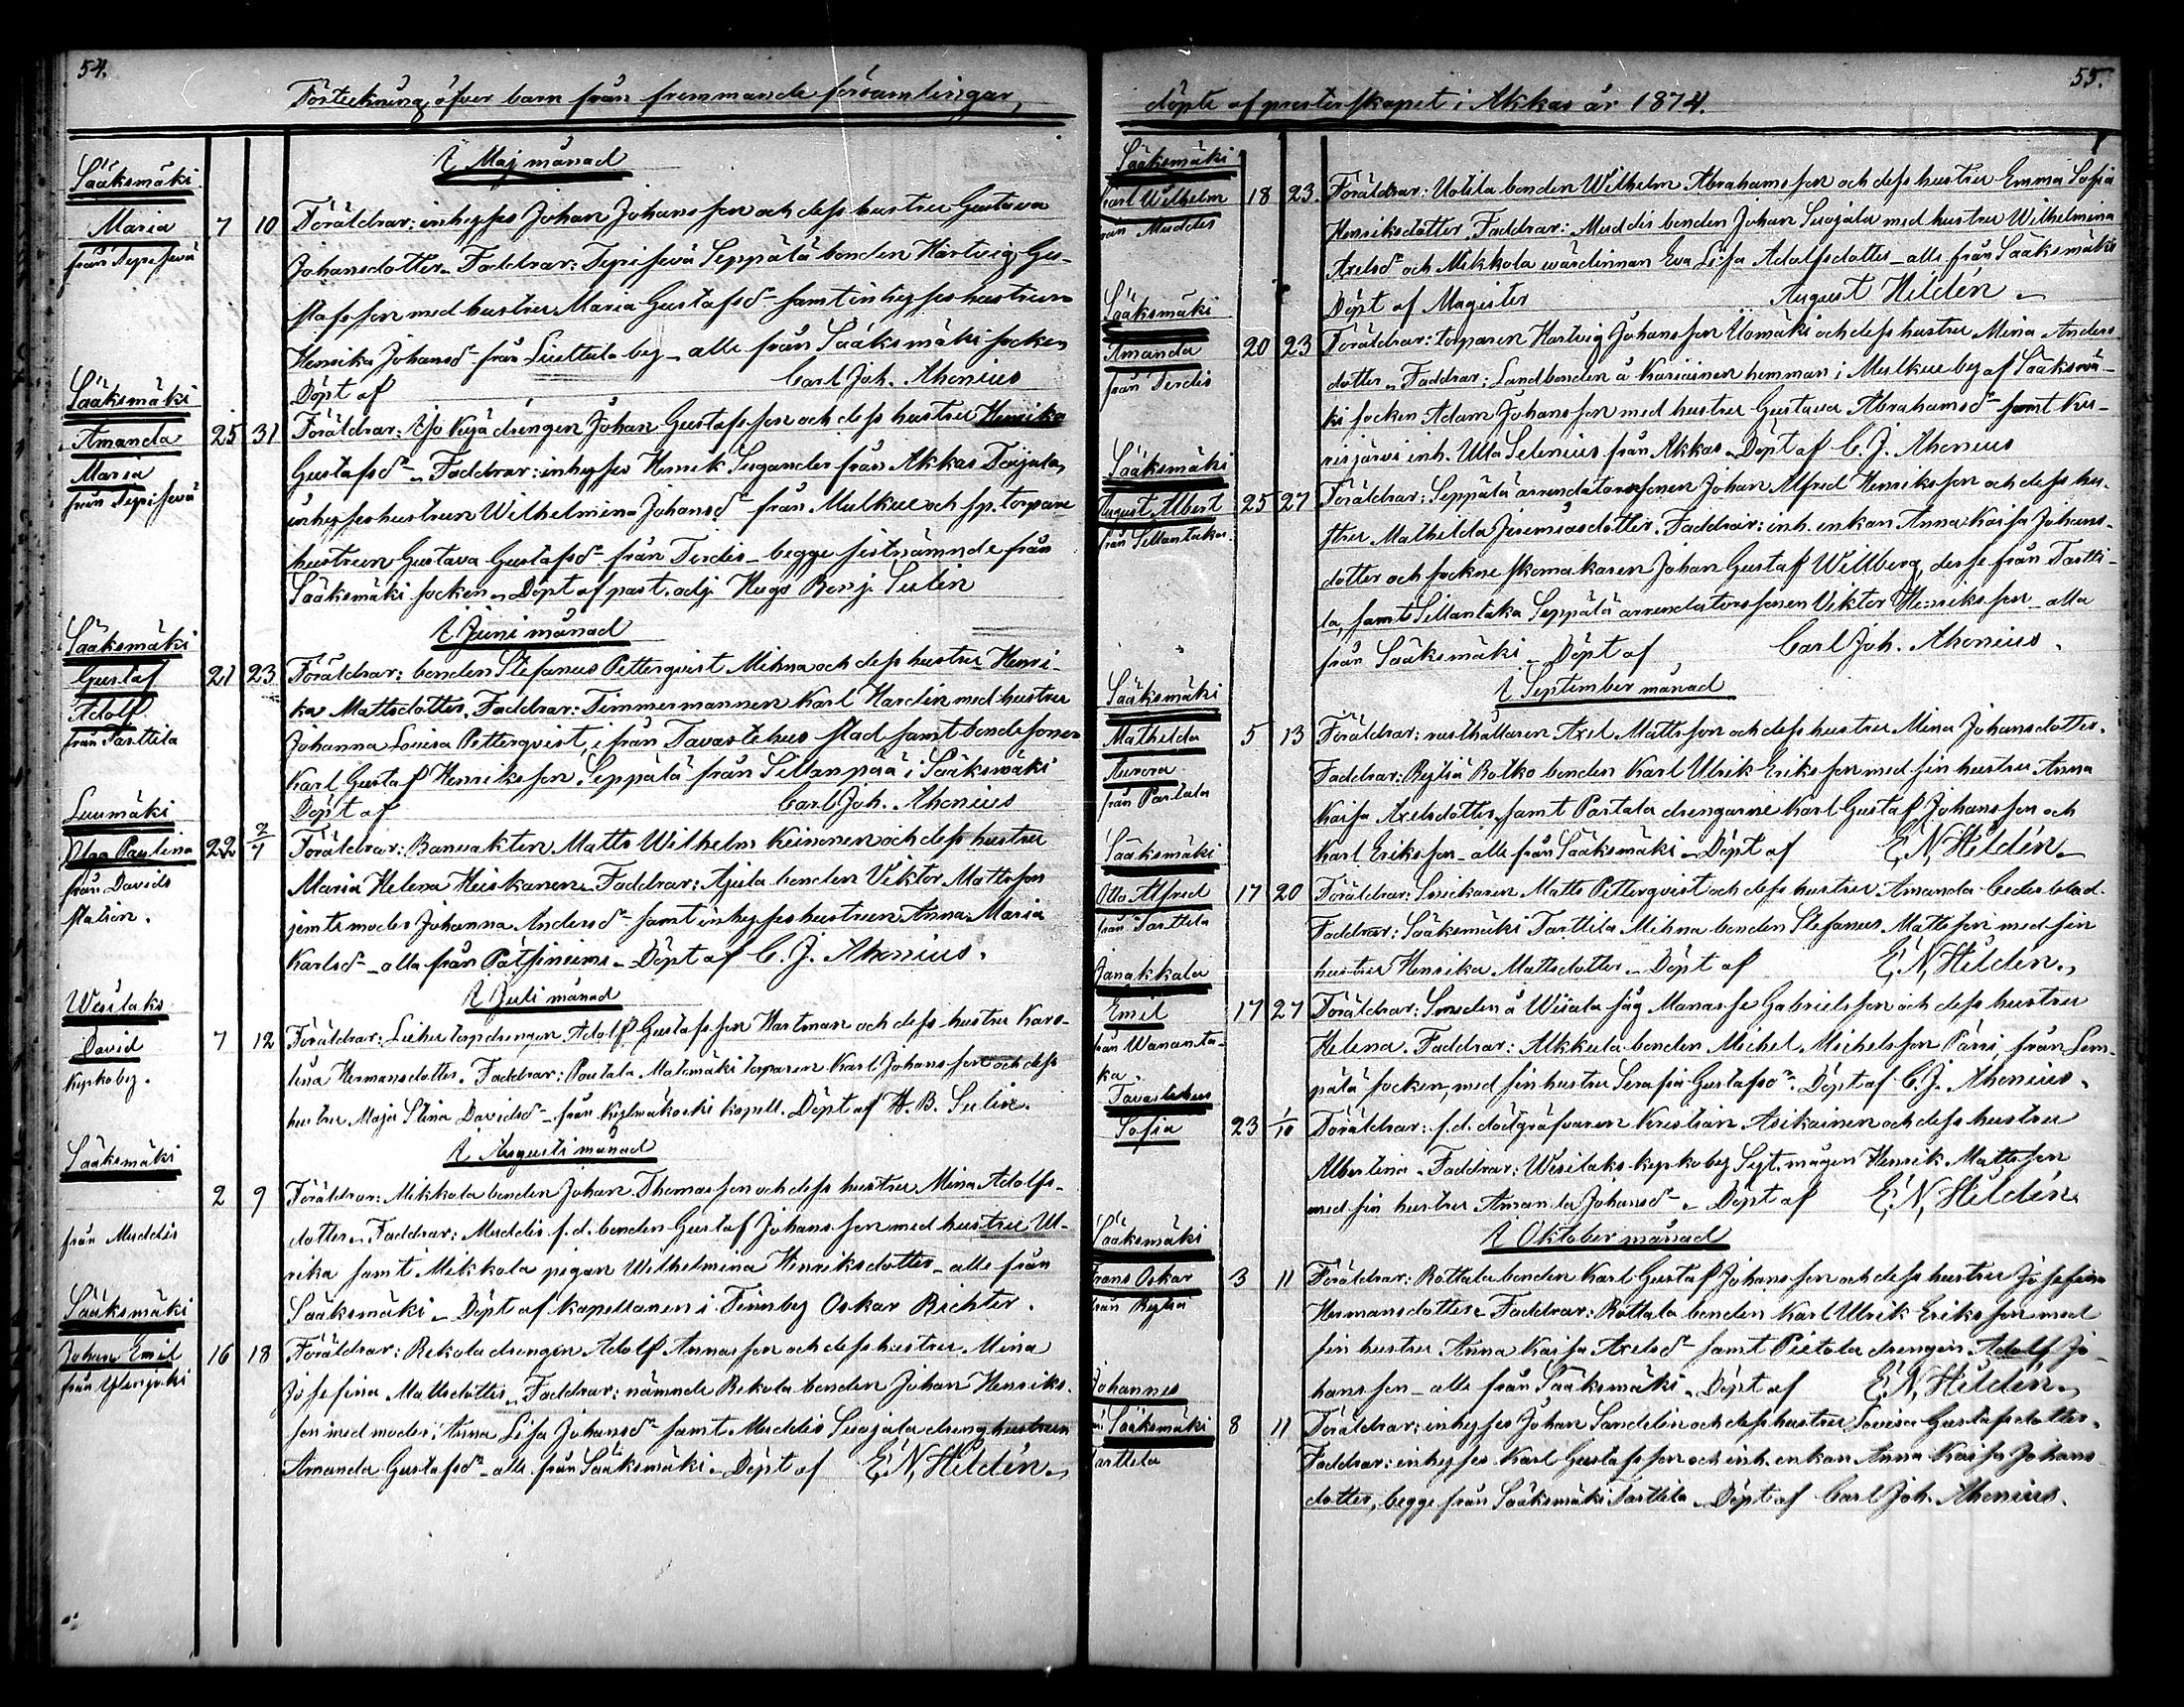 54.
Förteckning öfver barn från fremmande församlingar,
I Maj månad
Sääksmäki
Maria 7 10 Föräldrar: inhyses Johan Johansson och dess hustru Gustava
från Tepisevä Johansdotter. Faddrar: Tepisevä Seppälä bonden Hartvig Gus-
tafsson med hustru Maria Gustafsdr samt inhyseshustrun
Henrika Johansdr från Liuttula by – alle från Sääksmäki socken
Döpt af Carl Joh. Ahonius
Sääksmäki
Amanda 25 31 Föräldrar: drengen Johan Gustafsson och dess hustru Henrika
Maria Gustafsdr. Faddrar: inhyses Henrik Sugander från Akkas Toijala,
från Tepisevä inhyseshustrun Wilhelmina Johansdr från Mulkue och sp. torpare
hustrun Gustava Gustafsdr från Terdis – begge sistnämnde från
Sääksmäki socken. Döpt af past. adj. Hugo Benj. Sulin
I Juni månad
Sääksmäki
Gustaf 21 23 Föräldrar: bonden Stefanus Petterqvist Mihna och dess hustru Henri-
Adolf ka Mattsdotter. Faddrar: Timmermannen Karl Hardin med hustru
från Tarttila Johanna Lovisa Petterqvist, ifrån Tavastehus stad samt bondesonen
Karl Gustaf Henriksson Seppälä från Sillanpää i Sääksmäki
Döpt af Carl Joh. Ahonius
Luumäki
Olga Paulina 22 2/7 Föräldrar: Banvakten Matts Wilhelm Keinonen och dess hustru
från Davids Maria Helena Heiskanen. Faddrar: Ajula bonden Viktor Mattsson
station. jemte moder Johanna Andersdr samt inhyseshustrun Anna Maria
Karlsdr – alla från Pätsiniemi. Döpt af C. J. Ahonius.
I Juli månad
Wesilaks
David 7 12 Föräldrar: torpdrengen Adolf Gustafsson Hartman och dess hustru Karo-
Kyrkoby. lina Hermansdotter. Faddrar: Pautala Matomäki torparen Karl Johansson och dess
hustru Maja Stina Davidsdr – från Kylmäkoski kapell. Döpt af H. B. Sulin.
I Augusti månad
Sääksmäki
2 9 Föräldrar: Mikkola bonden Johan Thomasson och dess hustru Mina Adolfs-
från Muddis dotter. Faddrar: Muddis f.d. bonden Gustaf Johansson med hustru Ul-
rika samt Mikkola pigan Wilhelmina Henriksdotter – alle från
Sääksmäki. Döpt af kapellanen i Finnby Oskar Richter.
Sääksmäki
Johan Emil 16 18 Föräldrar: Rekola drengen Adolf Annasson och dess hustru Mina
från Josefina Mattsdotter. Faddrar: nämnde Rekola bonden Johan Henriks-
son med moder Anna Lisa Johansdr samt Muddis Suojala drenghustrun
Amanda Gustafsdr – alle från Sääksmäki. Döpt af E. N. Hildén.
55.
döpte af presterskapet i Akkas år 1874.
Sääksmäki
Karl Wilhelm 18 23. Föräldrar: Uotila bonden Wilhelm Abrahamsson och dess hustru Emma Sofia
från Muddis Henriksdotter. Faddrar: Muddis bonden Johan Suojala med hustru Wilhelmina
Axelsdr och Mikkola wärdinnan Eva Lisa Adolfsdotter – alle från Sääksmäki
Döpt af Magister August Hildén
Sääksmäki
Amanda 20 23 Föräldrar: torparen Hartvig Johansson Uomäki och dess hustru Mina Anders
från Terdis dotter. Faddrar: Landbonden å Kariainen hemman i Mulkue by af Sääksmä-
ki socken Adam Johansson med hustru Gustava Abrahamsdr samt Ku-
risjärvi inh. Ulla Selenius från Akkas. Döpt af C. J. Ahonius
Sääksmäki
August Albert 25 27 Föräldrar: Seppälä arrendatorssonen Johan Alfred Henriksson och dess hu-
från Sillantaka. stru Mathilda Jeremiasdotter. Faddrar: inh. enkan Anna Kaisa Johans-
dotter och sockne skomakaren Johan Gustaf Willberg, desse från Tartti-
la, samt Sillantaka Seppälä arrendatorssonen Viktor Henriksson – alla
från Sääksmäki. Döpt af Carl Joh. Ahonius.
I September månad
Sääksmäki
Mathilda 5 13 Föräldrar: rusthållaren Axel Mattsson och dess hustru Mina Johansdotter.
Aurora Faddrar: Rejtiä Rotko bonden Karl Ulrik Eriksson med sin hustru Anna
från Partala Kaisa Axelsdotter, samt Partala drengarne Karl Gustaf Johansson och
Karl Eriksson – alle från Sääksmäki. Döpt af E. N. Hildén.
Sääksmäki
Otto Alfred 17 20 Föräldrar: Snickaren Matts Petterqvist och dess hustru Amanda Cederblad.
från Tarttila Faddrar: Sääksmäki Tarttila Mihna bonden Stefanus Mattsson med sin
hustru Henrika Mattsdotter. Döpt af E. N. Hildén.
Janakkala
Emil 17 27 Föräldrar: Smeden å Wiiala såg Manasse Gabrielsson och dess hustru
från Wananta- Helena. Faddrar: Alkkula bonden Michel Michelsson Pässi, från Lem-
ka. pälä socken, med sin hustru Serafia Gustafsdr. Döpt af C. J. Ahonius.
Tavastehus
Sofia 23 1/10 Föräldrar: f.d. dödgräfvaren Kristian Asikainen och dess hustru
Albertina. Faddrar: Wesilaks kyrkoby Sept. mågen Henrik Mattsson
med sin hustru Amanda Johansdr. Döpt af E. N. Hildén
I Oktober månad
Sääksmäki
Frans Oskar 3 11 Föräldrar: Rottala bonden Karl Gustaf Johansson och dess hustru Josefina
från Rejtiä Hermansdotter. Faddrar: Rottala bonden Karl Ulrik Eriksson med
sin hustru Anna Kaisa Axelsdr samt Pietola drengen Adolf Jo-
hansson – alle från Sääksmäki. Döpt af E. N. Hildén.
Johannes
från Sääksmäki 8 11 Föräldrar: inhyses Johan Sandelin och dess hustru Lovisa Gustafsdotter.
Tarttila Faddrar: inhyses Karl Gustafsson och inh. enkan Anna Kaisa Johans
dotter, begge från Sääksmäki Tarttila. Döpt af Carl Joh. Ahonius.